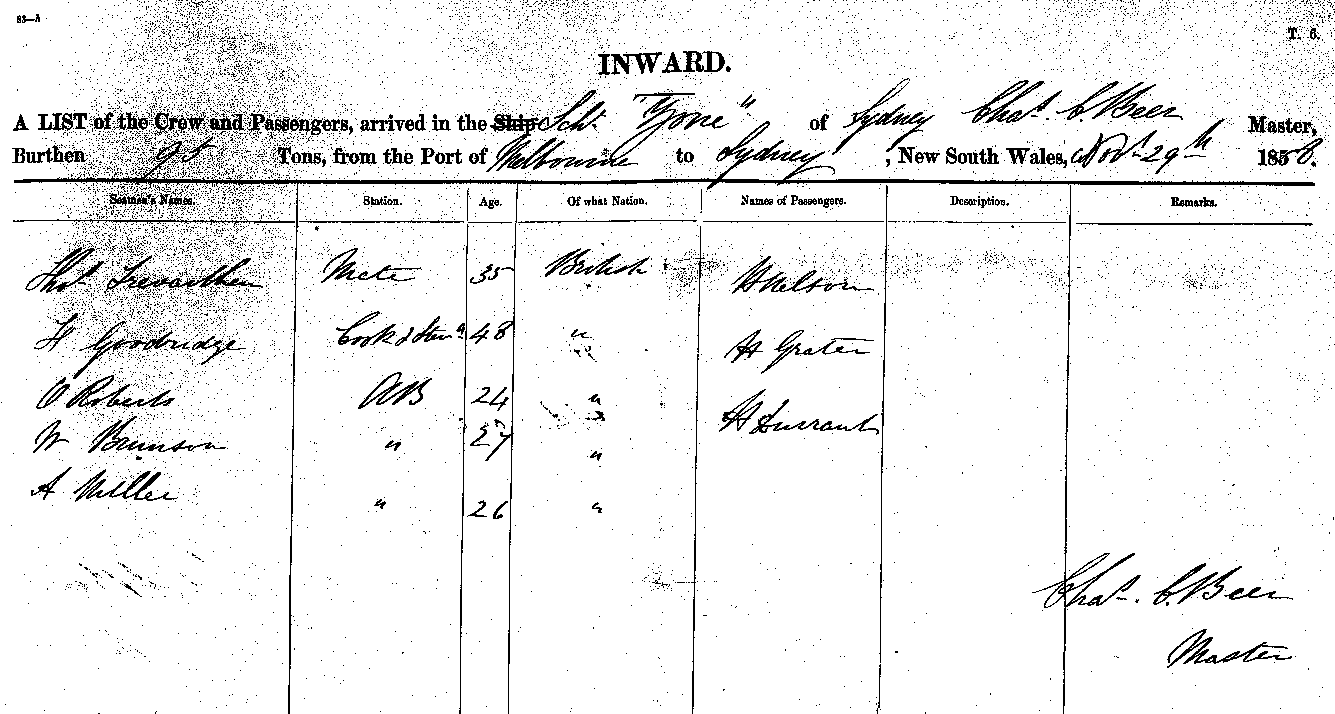 83—A
T. 6.
INWARD.
A LIST of the Crew and Passengers, arrived in the Ship Schr. "Yone" of Sydney Chas. C. Beer Master,
Burthen 95 Tons, from the Port of Melbourne to Sydney, New South Wales, Novr 29th 1858.
Seamen's Names. Station. Age. Of what Nation. Names of Passengers. Description. Remarks.
Thos Trevarthen Mate 35 British H Nelson
H Goodridge Cook & Stewd 48 " H Grater
O Roberts AB 24 " H Durrant
W Brunson " 27 "
A Miller " 26 "
Chas. C. Beer
Master